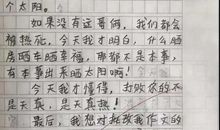 个太阳。
如果没有这哥俩，我们都会
被热死，今天我才明白，什么晒
房晒车晒幸福，那都不是本事，
有本事出来晒太阳啊！
今天我才懂得，打败你的不
是天真，是天真热！
最后，我想对批改我作文的